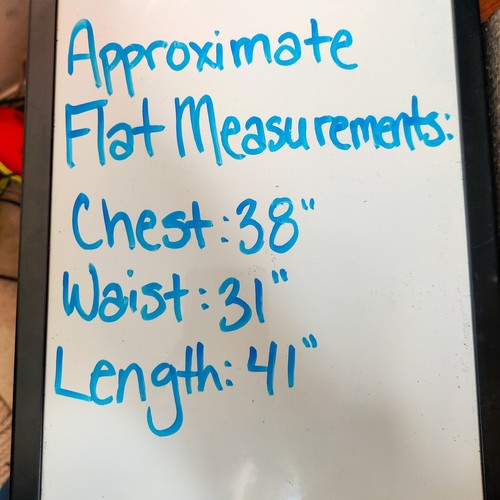 Approximate
Flat Measurements:
Chest: 38"
Waist: 31"
Length: 41"